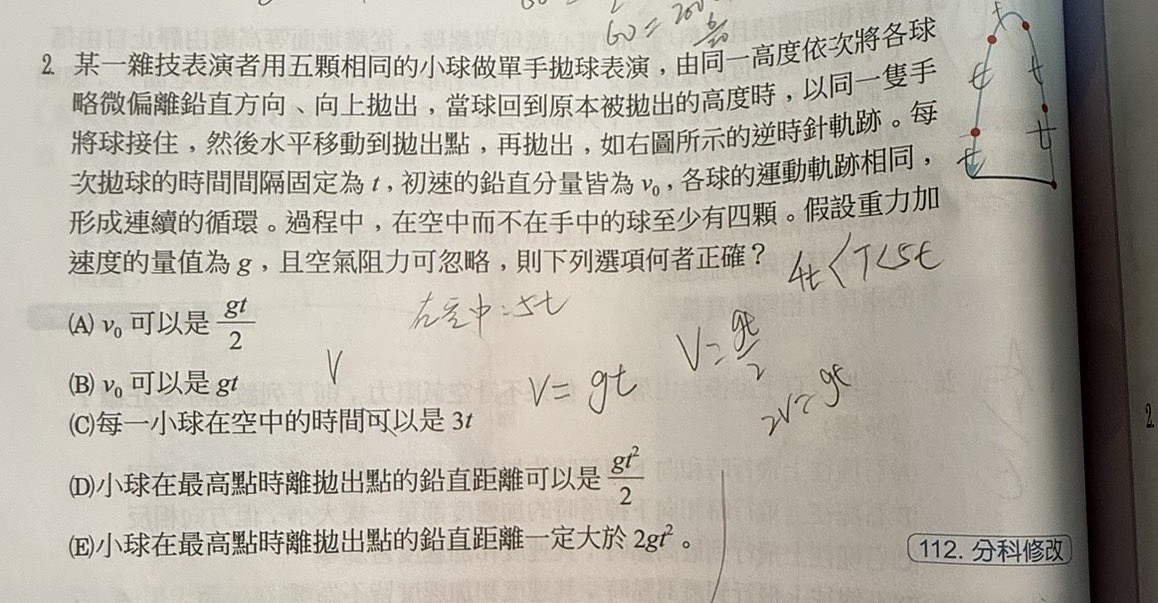 60 = 200
2. 某一雜技表演者用五顆相同的小球做單手拋球表演，由同一高度依次將各球
略微偏離鉛直方向、向上拋出，當球回到原本被拋出的高度時，以同一隻手
將球接住，然後水平移動到拋出點，再拋出，如右圖所示的逆時針軌跡。每
次拋球的時間間隔固定為 t，初速的鉛直分量皆為 v₀，各球的運動軌跡相同，
形成連續的循環。過程中，在空中而不在手中的球至少有四顆。假設重力加
速度的量值為 g，且空氣阻力可忽略，則下列選項何者正確？
4t < T < 5t
t
t
t
t
t
在空中=5t
(A) v₀ 可以是 gt/2
V
V = gt/2
(B) v₀ 可以是 gt
V = gt
2V = gt
(C)每一小球在空中的時間可以是 3t
(D)小球在最高點時離拋出點的鉛直距離可以是 gt²/2
(E)小球在最高點時離拋出點的鉛直距離一定大於 2gt²。
112. 分科修改
2.